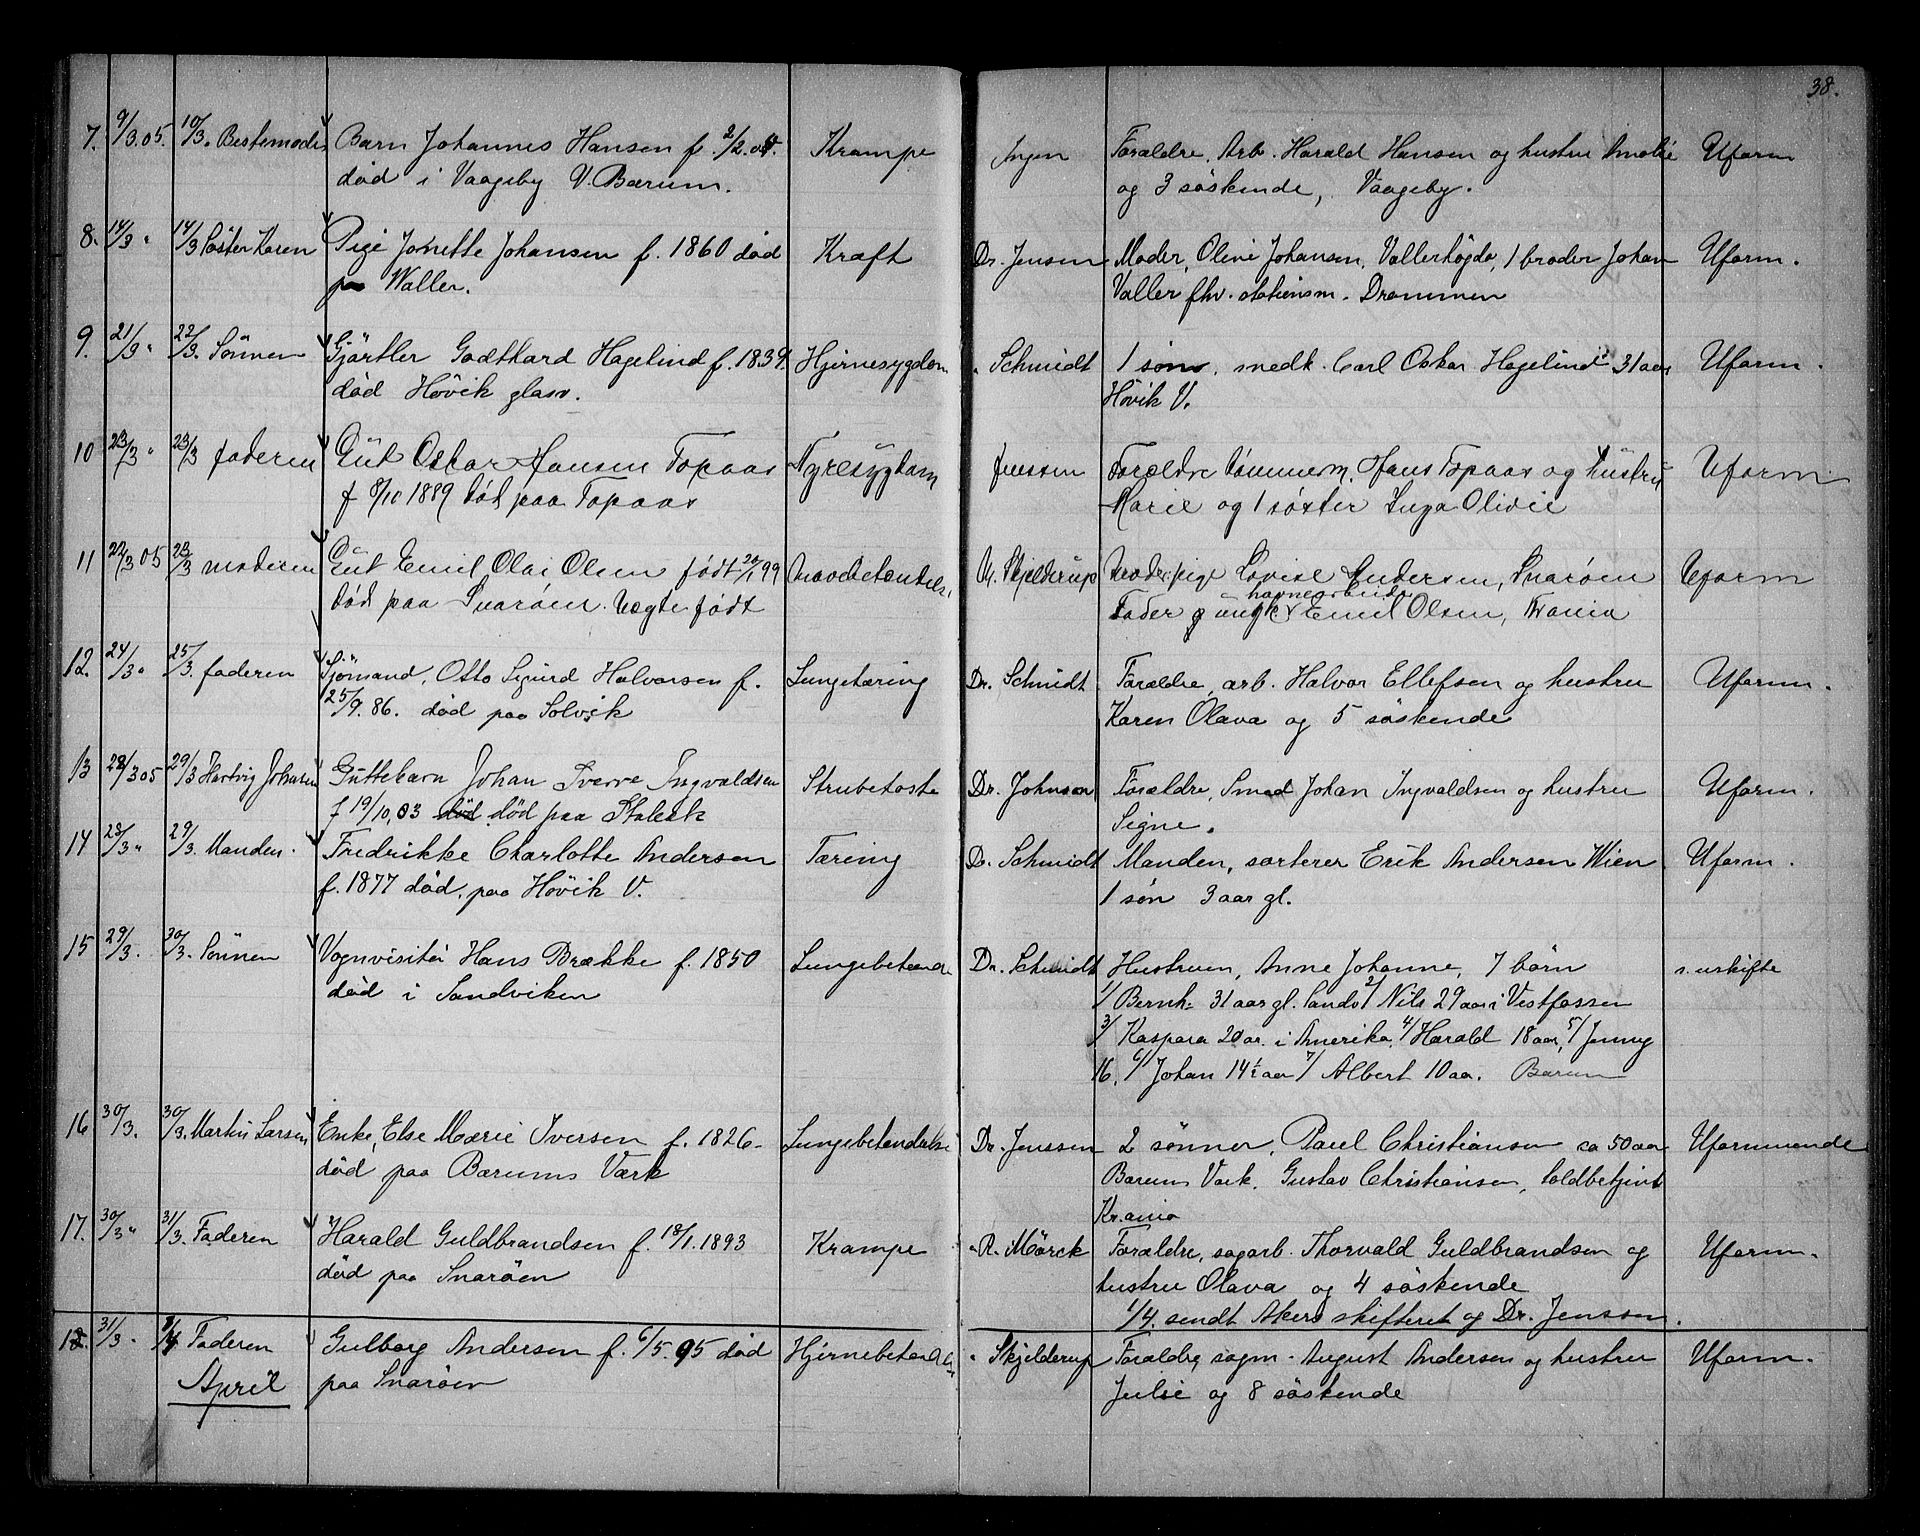 38.
7. 9/3.05. 10/3. Bestemoder Barn Johannes Hansen f. 2/2.05. Krampe Ingen Forældre, Arb. Harald Hansen og hustru Amalie Uform
død i Vaageby V. Bærum. og 3 søskende, Vaageby.
8. 14/3 " 14/3 Søster Karen Pige Jonette Johansen f. 1860 død Kræft Dr. Jensen Moder, Oline Johansen, Vallerhøgda, 1 broder Johan Uform.
paa Waller. Valler fhv. stationsm. Drammen
9. 21/3 " 22/3. Sönnen Gjørtler Godthard Hagelind f. 1839. Hjernesygdom " Schmidt 1 søn, smedk. Carl Oskar Hagelind 31 aar Uform.
død Hövik glasv. Hövik V.
10 23/3 " 23/3 faderen Gut Oskar Hansen Topaas Nyresygdom Jenssen Forældre tømmerm. Hans Topaas og hustru Uform
f 8/10 1889 død paa Topaas Marie og 1 søster Inga Olivie
11 22/3 05 23/3 moderen Gut Emil Olai Olsen født 20/1 99 Mavebetændelse, Skjelderup Moder: pige Lovise Andersen, Snarøen Uform
død paa Snarøen. Uægte født Fader: ungk. havnearbeider Emil Olsen, Krania
12. 24/3 " 25/3. faderen Sjömand, Otto Sigurd Halvorsen f. Lungetæring Dr. Schmidt Forældre, arb. Halvor Ellefsen og hustru Uform.
25/9. 86. død paa Solvik Karen Olava og 5 søskende
13 28/3 05 29/3 Hartvig Johansen Guttebarn Johan Sverre Ingvaldsen Strubehoste Dr. Johnson Forældre, Smed Johan Ingvaldsen og hustru Uform.
f 19/10, 03 død død paa Stabekk Signe.
14 28/3 " 29/3. Manden. Fredrikke Charlotte Andersen Tæring Dr. Schmidt Manden, sorterer Erik Andersen Wien Uform.
f. 1877 død, paa Hövik V. 1 søn 3 aar gl.
15 29/3. 30/3. Sönnen Vognvisitør Hans Brække f. 1850 Lungebetænde Dr. Schmidt Hustruen, Anne Johanne, 7 børn s. uskifte
død i Sandviken 1/ Bernh. 31 aar gl. Sandv 2/ Nils 29 aar i Vestfossen
3/ Kaspara 20 ar. i Amerika, 4/ Harald 18 aar, 5/ Jenny
16. 6/ Johan 14½ aar 7/ Albert 10 aa. Bærum
16 30/3. 30/3. Martin Larsen Enke, Else Marie Iversen f. 1826 - Lungebetændelse Dr. Jenssen 2 sønner, Paul Christiansen ca 50 aar Uformuende
død paa Bærums Værk Bærums Værk, Gustav Christiansen, toldbetjent
Kr.ania
17. 30/3 " 31/3. Faderen Harald Guldbrandsen f. 18/1. 1893 Krampe " R. Mörck Forældre, sagarb. Thorvald Guldbrandsen og Uform.
død paa Snarøen hustru Olava og 4 søskende
1/4. sendt Akers skifteret og Dr. Jenssen.
18. 31/3 " 1/4 Faderen Gulborg Andersen f. 6/5. 95 død Hjernebetændelse " Skjelderup Forældre, sagm. August Andersen og hustru Uform.
April paa Snarøen Julie og 8 søskende